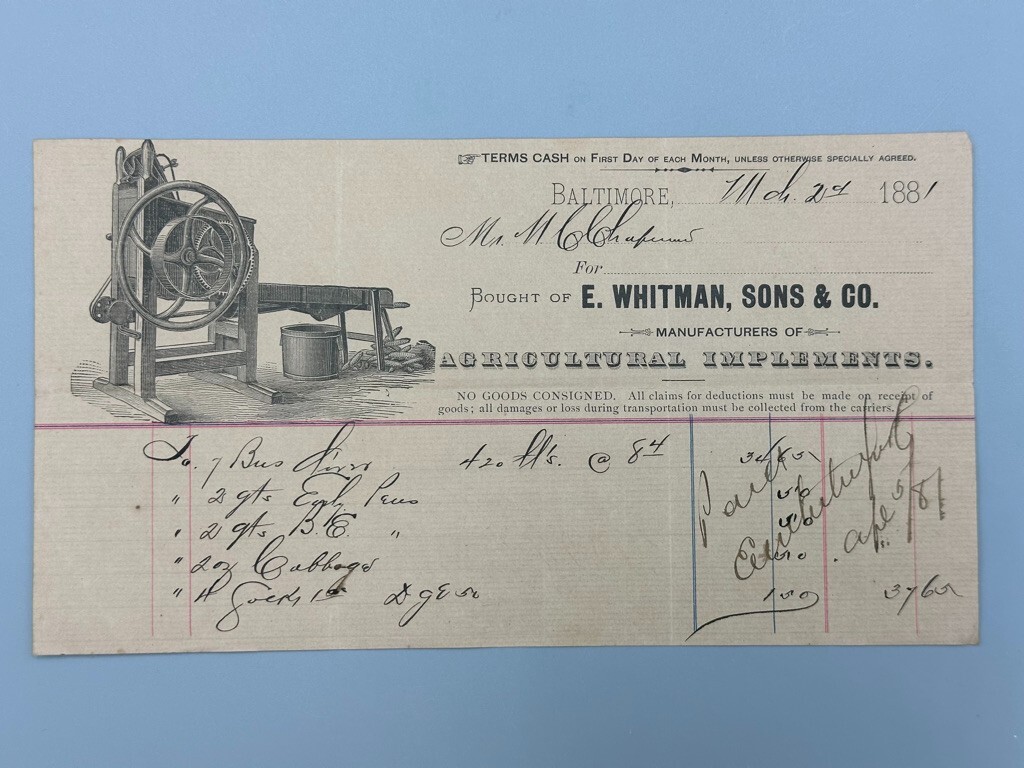 ☞ TERMS CASH ON FIRST DAY OF EACH MONTH, UNLESS OTHERWISE SPECIALLY AGREED.
BALTIMORE, Mch. 2d 1881
Mr. M C Chapman
For
BOUGHT OF E. WHITMAN, SONS & CO.
MANUFACTURERS OF
AGRICULTURAL IMPLEMENTS.
NO GOODS CONSIGNED. All claims for deductions must be made on receipt of
goods; all damages or loss during transportation must be collected from the carriers.
To 7 Bus 420 lbs. @ 8
" 2 qts Early Peas 50
" 2 qts. B.E. "
" 2 oz Cabbage
" 4 Sacks 150 3765
Paid
E Whitman
Apl 5/81